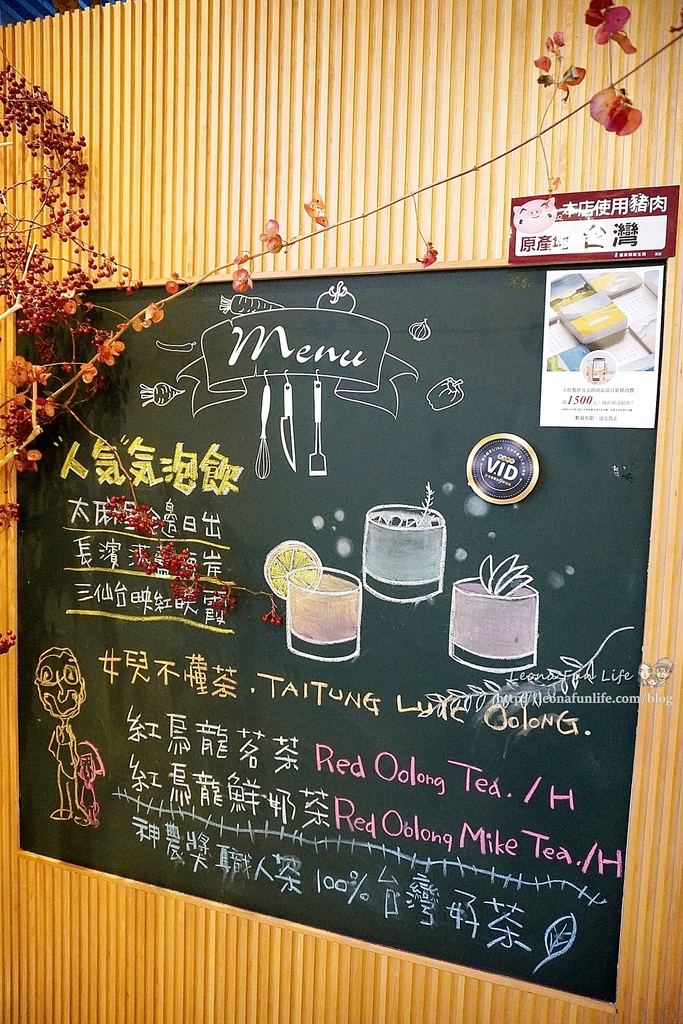 本店使用豬肉
原產地 台灣
Menu
1500
VID
"人氣"氣泡飲
太麻里 邊日出
長濱 岸
三仙台映紅映霞
女兒不懂茶.TAITUNG LUYE OOLONG.
紅烏龍茗茶 Red Oolong Tea./H
紅烏龍鮮奶茶 Red Oolong Mike Tea./H
神農獎職人茶 100% 台灣好茶
Leona Fun Life
http://leonafunlife.com/blog